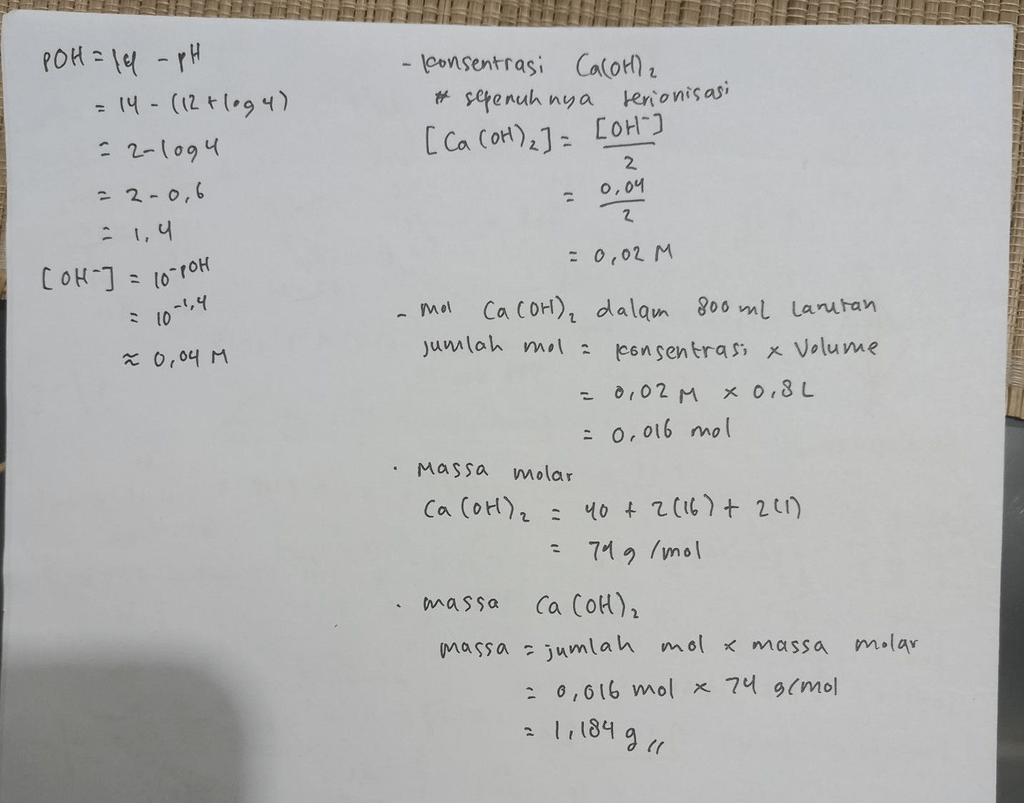 pOH = 14 - pH
= 14 - (12 + log 4)
= 2 - log 4
= 2 - 0,6
= 1,4
[OH⁻] = 10^-pOH
= 10^-1,4
≈ 0,04 M
- konsentrasi Ca(OH)₂
* sepenuhnya terionisasi
[Ca(OH)₂] = [OH⁻]/2
= 0,04/2
= 0,02 M
- mol Ca(OH)₂ dalam 800 ml larutan
jumlah mol = konsentrasi × Volume
= 0,02 M × 0,8 L
= 0,016 mol
· Massa molar
Ca(OH)₂ = 40 + 2(16) + 2(1)
= 74 g/mol
· massa Ca(OH)₂
massa = jumlah mol × massa molar
= 0,016 mol × 74 g/mol
= 1,184 g //